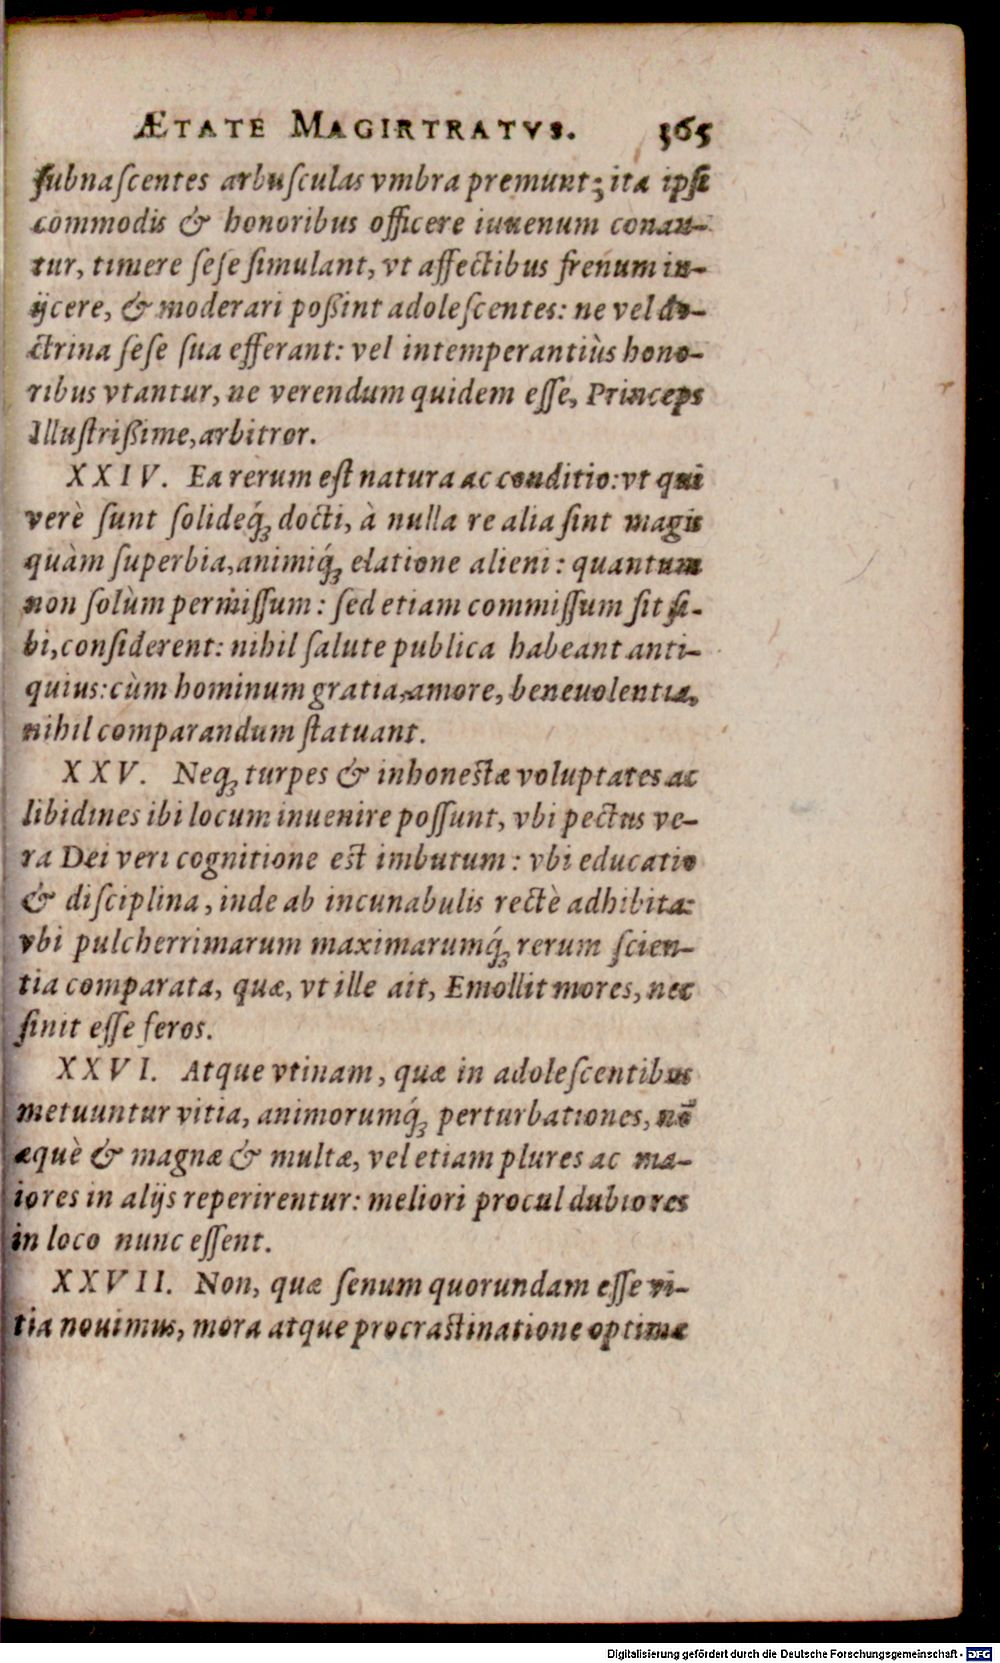 ÆTATE MAGIRTRATVS. 365
ſubnaſcentes arbuſculas vmbra premunt; ita ipſi
commodis & honoribus officere iuuenum conan-
tur, timere ſeſe ſimulant, vt affectibus frenum in-
ijcere, & moderari poßint adoleſcentes: ne vel do-
ctrina ſeſe ſua efferant: vel intemperantiùs hono-
ribus vtantur, ne verendum quidem eſſe, Princeps
Illuſtrißime, arbitror.
XXIV. Ea rerum eſt natura ac conditio: vt qui
verè ſunt ſolideq́; docti, à nulla re alia ſint magis
quàm ſuperbia, animiq́; elatione alieni: quantum
non ſolùm permiſſum: ſed etiam commiſſum ſit ſi-
bi, conſiderent: nihil ſalute publica habeant anti-
quius: cùm hominum gratia, amore, beneuolentia,
nihil comparandum ſtatuant.
XXV. Neq; turpes & inhoneſtæ voluptates ac
libidines ibi locum inuenire poſſunt, vbi pectus ve-
ra Dei veri cognitione eſt imbutum: vbi educatio
& diſciplina, inde ab incunabulis rectè adhibita:
vbi pulcherrimarum maximarumq́; rerum ſcien-
tia comparata, quæ, vt ille ait, Emollit mores, nec
ſinit eſſe feros.
XXVI. Atque vtinam, quæ in adoleſcentibus
metuuntur vitia, animorumq́; perturbationes, nõ
æquè & magnæ & multæ, vel etiam plures ac ma-
iores in alijs reperirentur: meliori procul dubio res
in loco nunc eſſent.
XXVII. Non, quæ ſenum quorundam eſſe vi-
tia nouimus, mora atque procraſtinatione optimæ
Digitalisierung gefördert durch die Deutsche Forschungsgemeinschaft - DFG